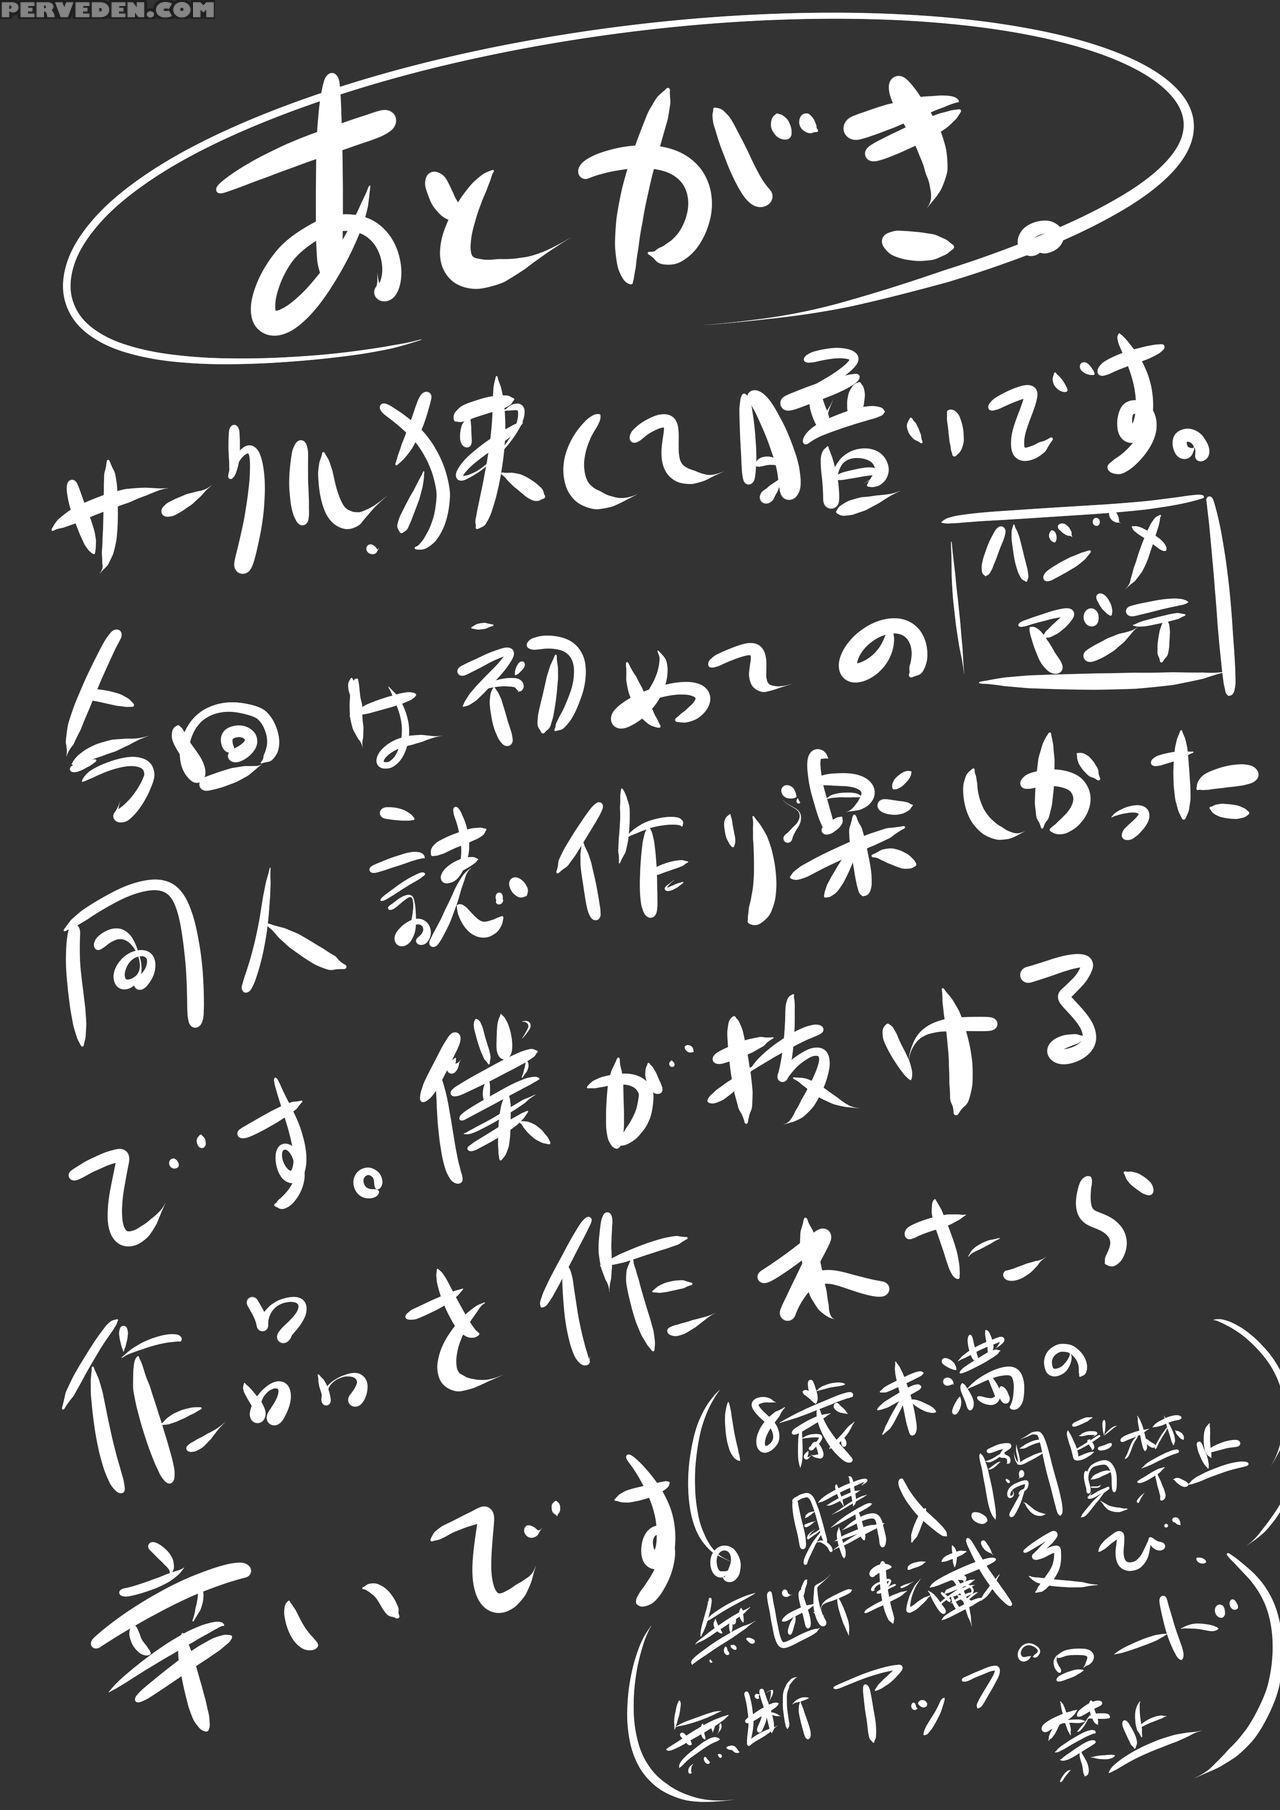 PERVEDEN.COM
あとがき
サークル.狭くて暗いです。
バジメ
マジンテ
今回は初めての
同人誌作り楽しかった
です。僕が抜ける
作品を作れたら
幸いです。
(18歳未満の
購入.閲覧禁止)
(無断転載及び.
無断アップロード
禁止)